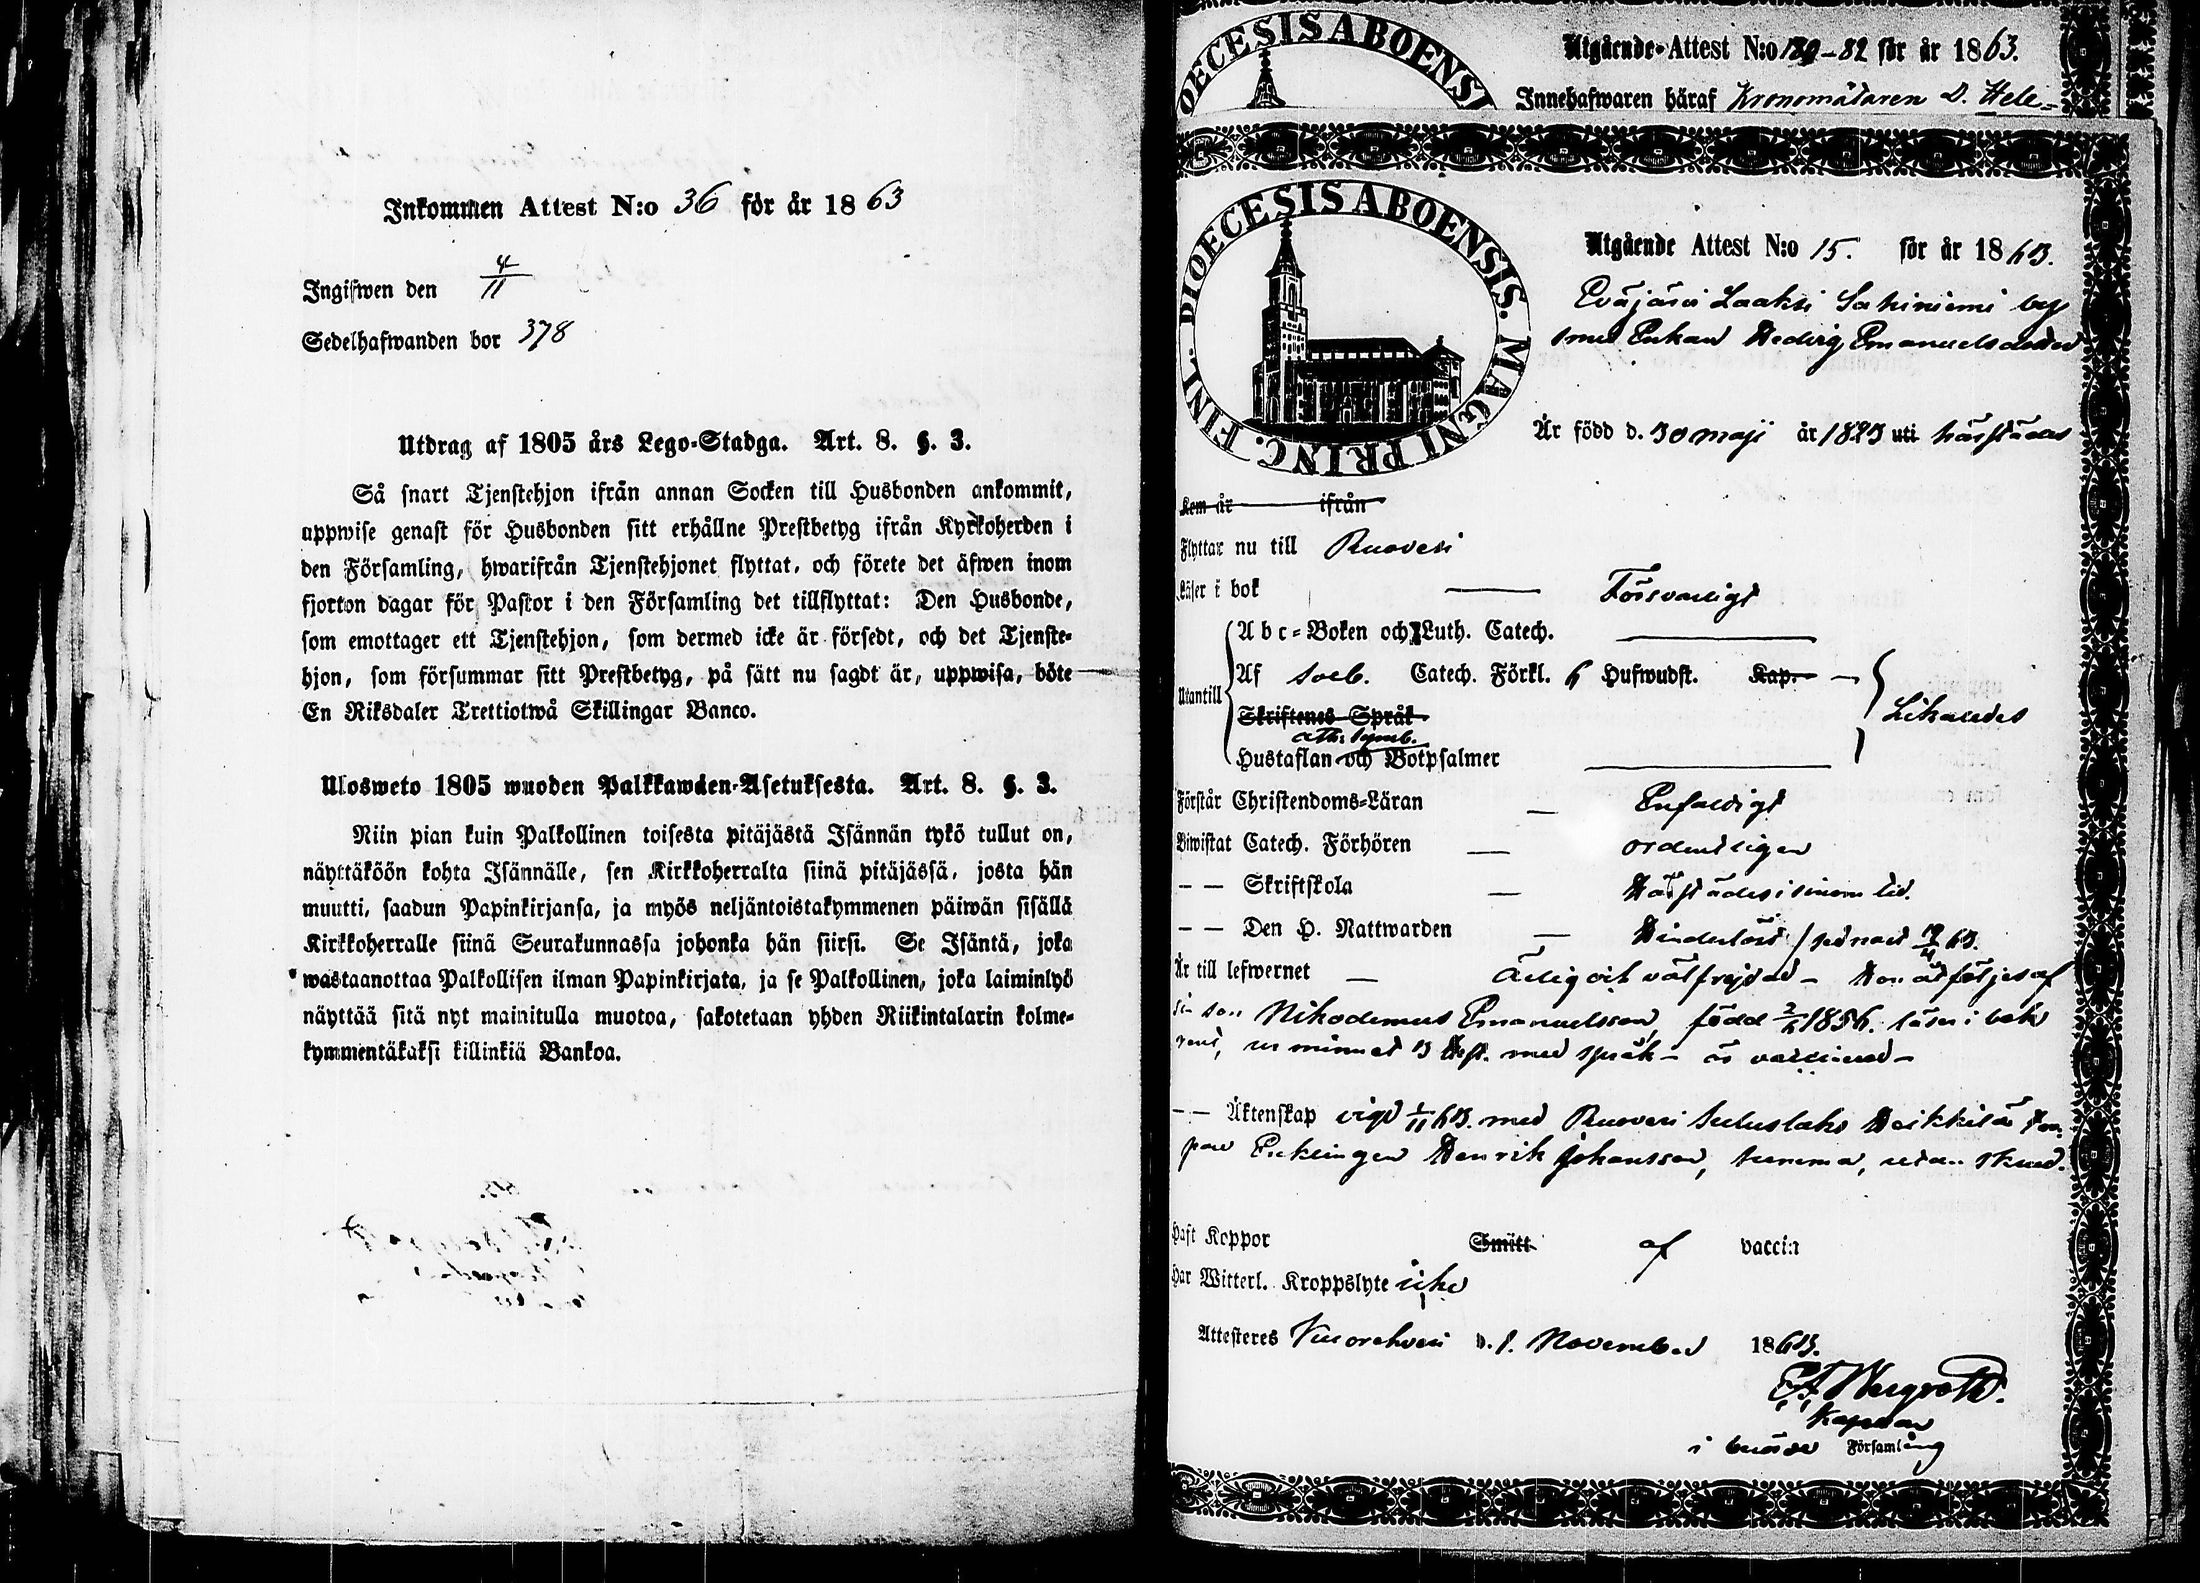 Inkommen Attest N:o 36 för år 1863
Ingifwen den 4/11
Sedelhafwanden bor 378
Utdrag af 1805 års Lego-Stadga. Art. 8. §. 3.
Så snart Tjenstehjon ifrån annan Socken till Husbonden ankommit,
uppwise genast för Husbonden sitt erhållne Prestbetyg ifrån Kyrkoherden i
den Församling, hwarifrån Tjenstehjonet flyttat, och förete det äfwen inom
fjorton dagar för Pastor i den Församling det tillflyttat: Den Husbonde,
som emottager ett Tjenstehjon, som dermed icke är försedt, och det Tjenste-
hjon, som försummar sitt Prestbetyg, på sätt nu sagdt är, uppwisa, böte
En Riksdaler Trettiotwå Skillingar Banco.
Ulosweto 1805 wuoden Palkkawäen-Asetuksesta. Art. 8. §. 3.
Niin pian kuin Palkollinen toisesta pitäjästä Isännän tykö tullut on,
näyttäköön kohta Isännälle, sen Kirkkoherralta siinä pitäjässä, josta hän
muutti, saadun Papinkirjansa, ja myös neljäntoistakymmenen päiwän sisällä
Kirkkoherralle siinä Seurakunnassa johonka hän siirsi. Se Isäntä, joka
wastaanottaa Palkollisen ilman Papinkirjata, ja se Palkollinen, joka laiminlyö
näyttää sitä nyt mainitulla muotoa, sakotetaan yhden Riikintalarin kolme-
kymmentäkaksi killinkiä Bankoa.
DIOECESIS ABOENSI
Utgående-Attest N:o -82 för år 1863.
Innehafwaren häraf Kronomätaren D. Hele-
FINL. DIOECESIS ABOENSIS. MAGNI PRINC.
Utgående Attest N:o 15. för år 1863.
Eväjärvi Laaksi Sahiniemi by
Enkan Hedvig Emanuelsdotter
Är född d. 30 maji år 1823 uti härstädes
Kom år ifrån
Flyttar nu till Ruovesi
Läser i bok Försvarligt
Abc-Boken och Luth. Catech.
Utantill
Af soeb. Catech. Förkl. 6 Hufwudst. Kap.
Likaledes
Skriftenes Språk
ath: symb.
Hustaflan och Botpsalmer
Förstår Christendoms-Läran Enfaldigt
Biwistat Catech. Förhören ordentligen
— — Skriftskola Härstädes i sinom tid.
— — Den H. Nattwarden Hinderlöst / sednast 63.
Är till lefwernet Ärlig och välfrejdad – Hon åtföljes af
sin son Nikodemus Emanuelsson, född 1856. läser i bok
rent, ur minnet 3 Hfst. med språk – är vaccinerad –
— — Äktenskap vigd 1/11 63. med Ruovesi Suluslaks Heikkilä
Enklingen Henrik Johansson, summa, utan skuld.
Haft Koppor Smitt af vaccin
Har Witterl. Kroppslyte icke
Attesteres Kuorehvesi d. 1. November 1863.
Kapellan
i berörde Församling